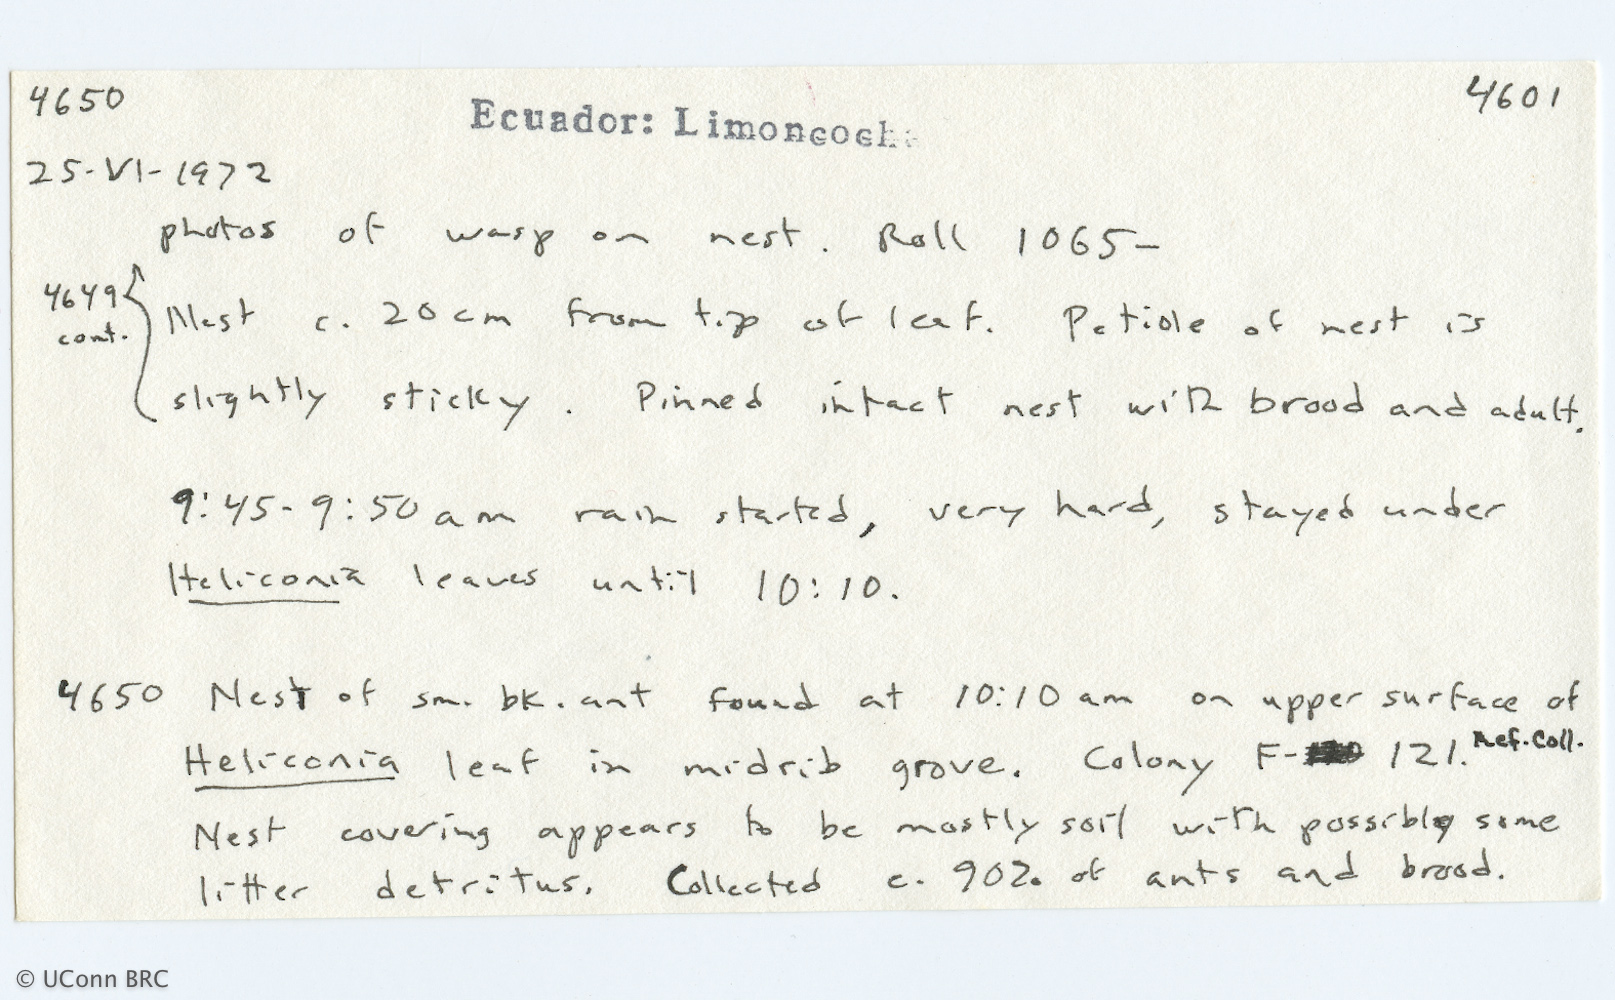 4650
Ecuador: Limoncocha
4601
25-VI-1972
photos of wasp on nest. Roll 1065-
4649 cont.
Nest c. 20 cm from tip of leaf. Petiole of nest is
slightly sticky. Pinned intact nest with brood and adult.
9:45-9:50 am rain started, very hard, stayed under
Heliconia leaves until 10:10.
4650 Nest of sm. bk. ant found at 10:10 am on upper surface of
Heliconia leaf in midrib grove. Colony F- 121. Ref. Coll.
Nest covering appears to be mostly soil with possibly some
litter detritus. Collected c. 90% of ants and brood.
© UConn BRC